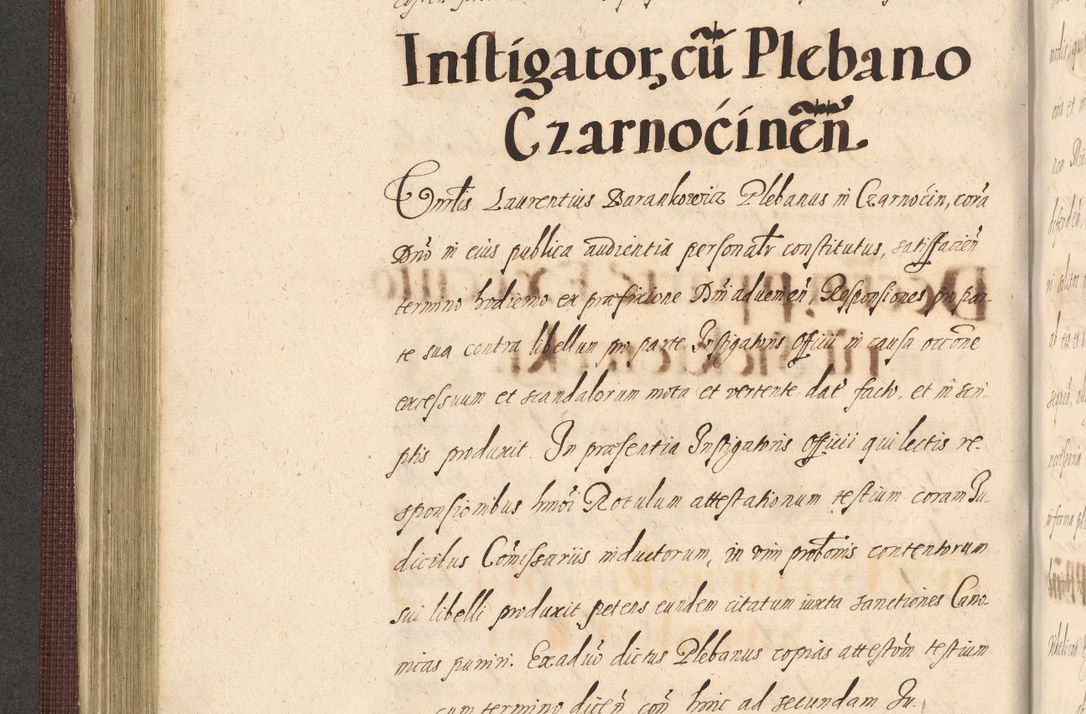 Instigator, cũ Plebano
Czarnocinẽn.
Laurentius Barankowicz Plebanus in Czarnocin, corã
Dnõ in eius publica audientia personalr constitutus, satisfaciẽn
termino hodierno ex præfixione Dnĩ aduenieñ, Responsiones pro par-
te sua contra libellum pro parte Instigatoris Officii in causa occõne
excessuum et scandalorum mota et vertente dat facto, et in scri-
ptis produxit. In præsentia Instigatoris Officii qui lectis re-
sponsionibus hmõi Rotulum attestationum testium coram Ju-
dicibus Cõmissariis inductorum, in vim probõnis contentorum
sui libelli produxit petens eundem citatum iuxta sanctiones Cano-
nicas puniri. Ex aduõ dictus Plebanus copias attestõm testium
cum termino diceñ coñ hinc ad secundam Ju.